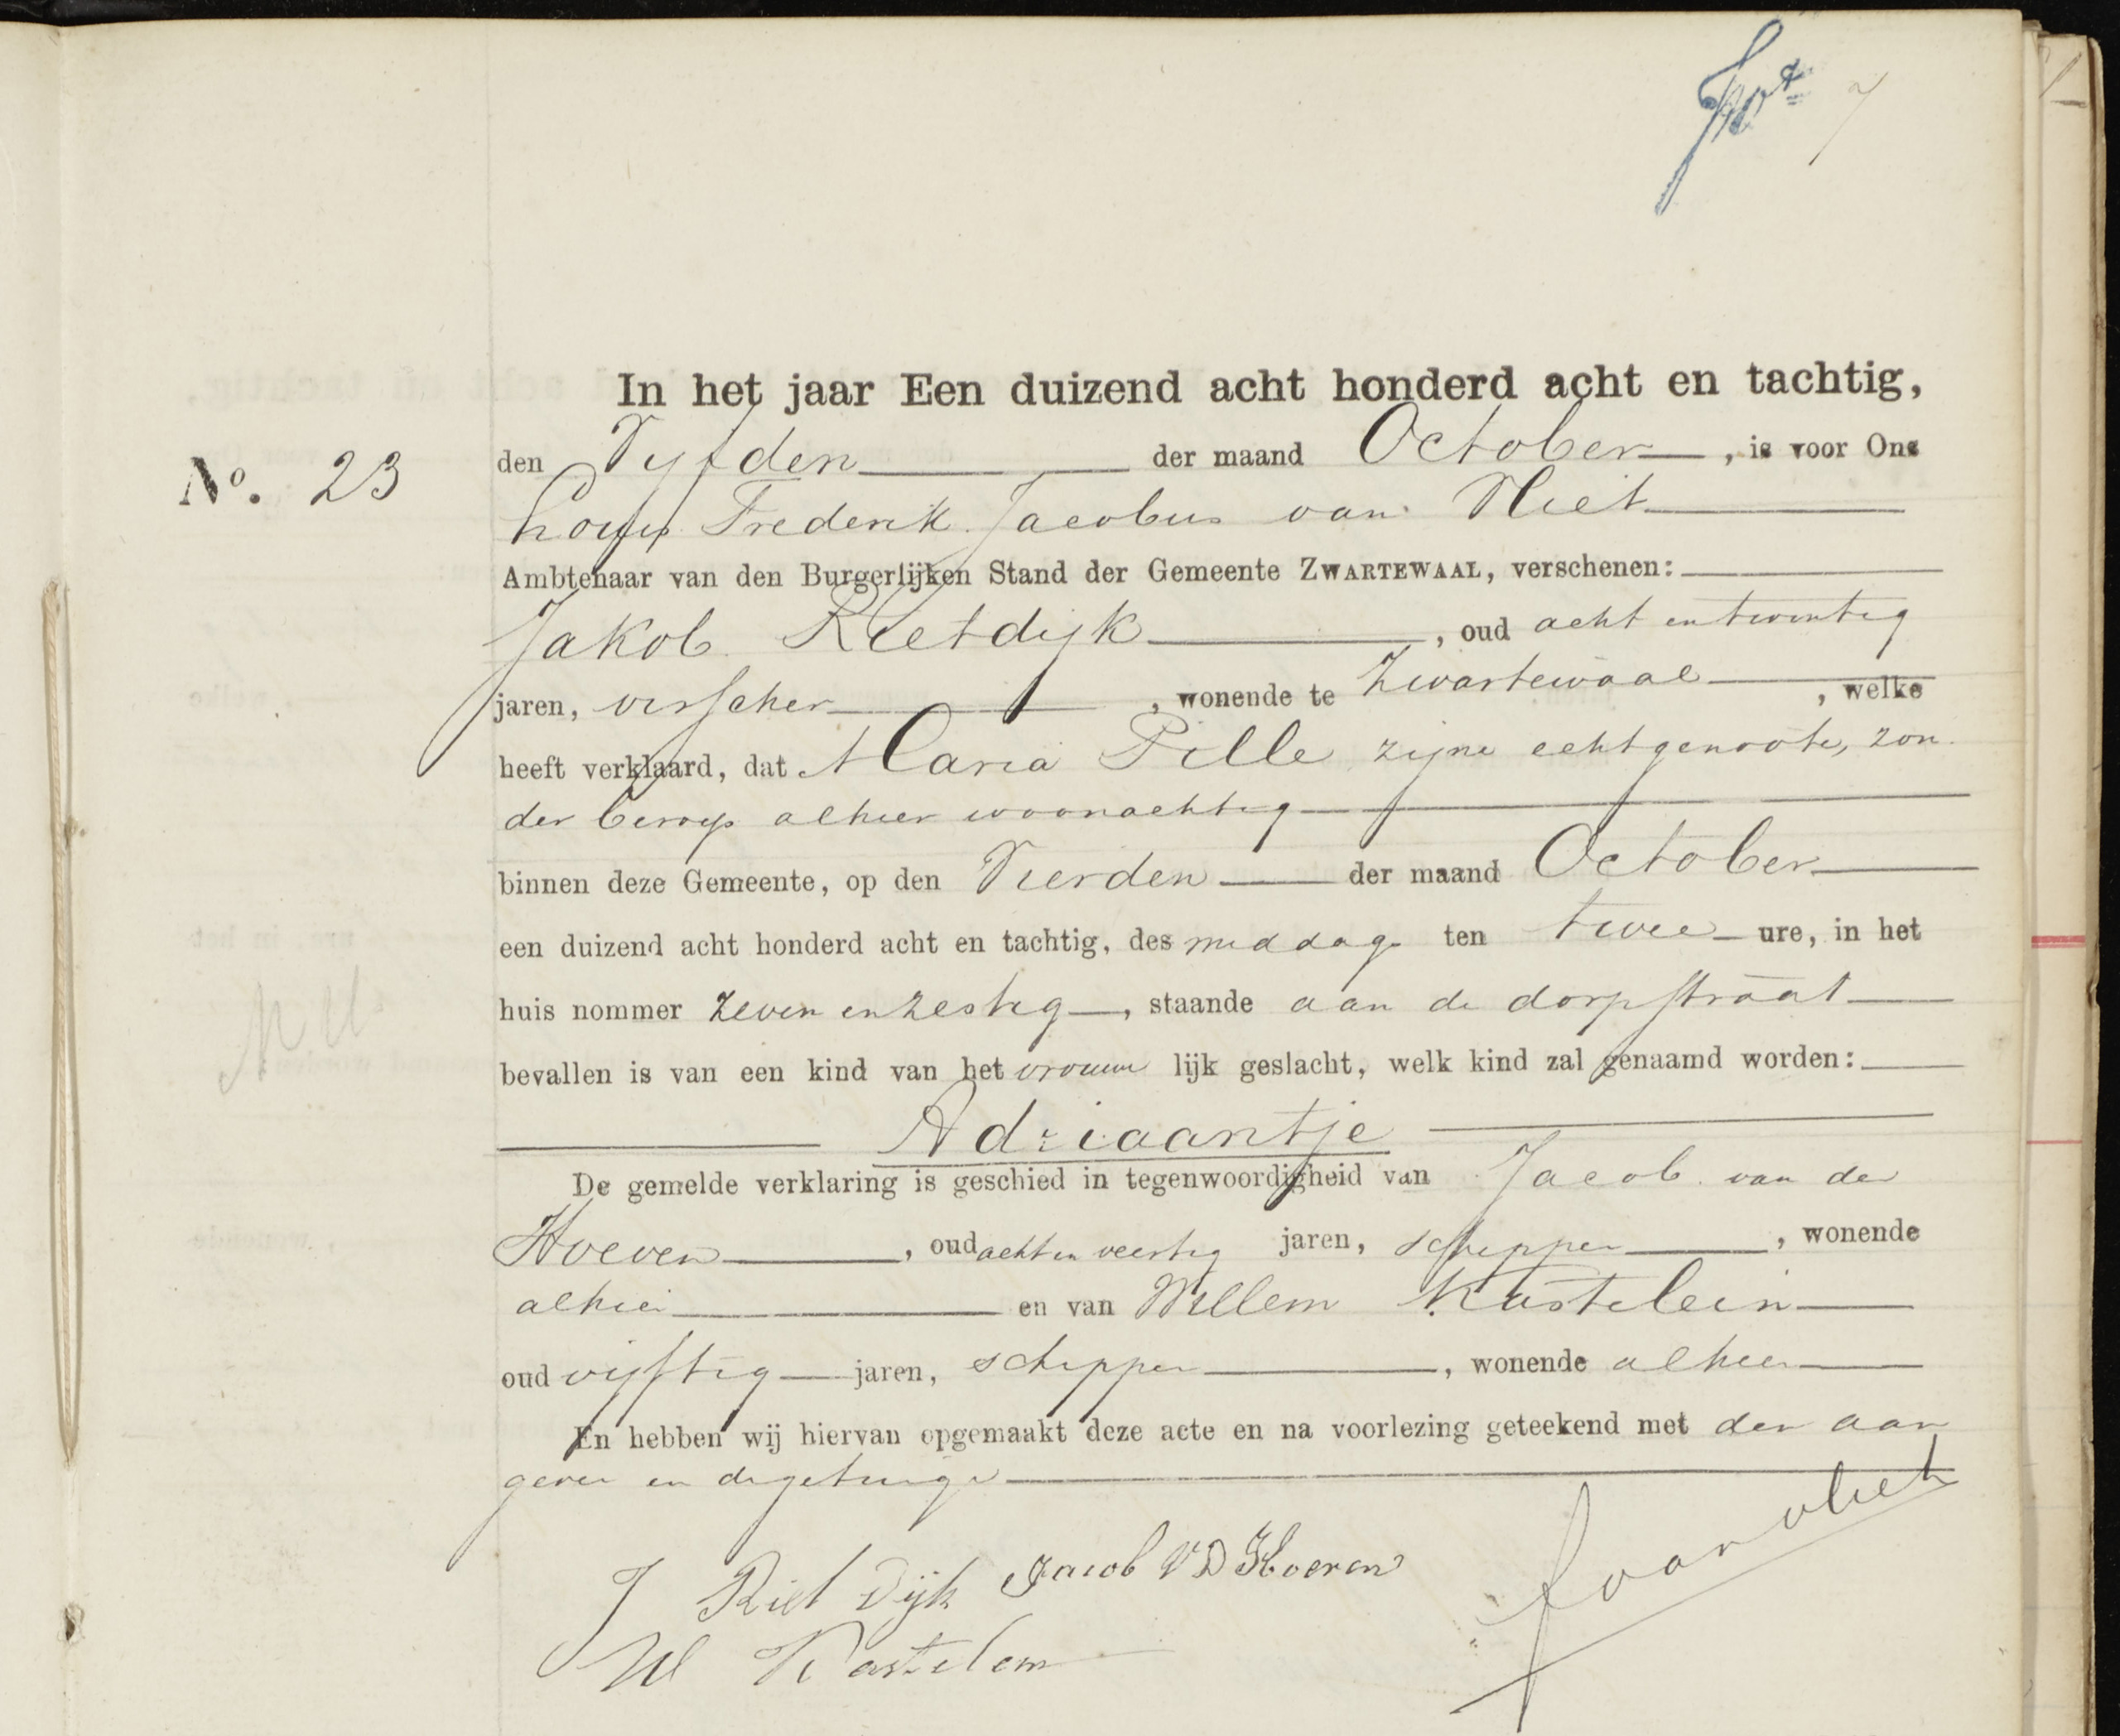 7
In het jaar Een duizend acht honderd acht en tachtig,
No. 23
den Vyfden der maand October, is voor Ons
Louis Frederik Jacobus van Vliet
Ambtenaar van den Burgerlijken Stand der Gemeente ZWARTEWAAL, verschenen:
Jakob Rietdijk, oud acht en twintig
jaren, visscher, wonende te Zwartewaal, welke
heeft verklaard, dat Maria Pille zijne echtgenoote, zon
der beroep alhier woonachtig
binnen deze Gemeente, op den Vierden der maand October
een duizend acht honderd acht en tachtig, des middags ten twee ure, in het
huis nommer zeven en zestig, staande aan de dorpstraat
bevallen is van een kind van het vrouwe lijk geslacht, welk kind zal genaamd worden:
Adriaantje
De gemelde verklaring is geschied in tegenwoordigheid van Jacob van der
Hoeven, oud acht en veertig jaren, schipper, wonende
alhier en van Willem Kastelein
oud vijftig jaren, schipper, wonende alhier
En hebben wij hiervan opgemaakt deze acte en na voorlezing geteekend met den aan
gever en de getuigen
J Rietdijk Jacob V D Hoeven
W Kastelein
van vliet